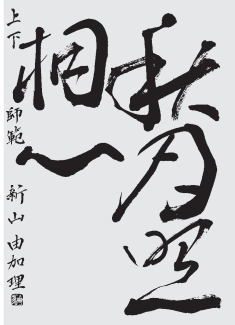 秋月照
上下 師範 新山 由加理